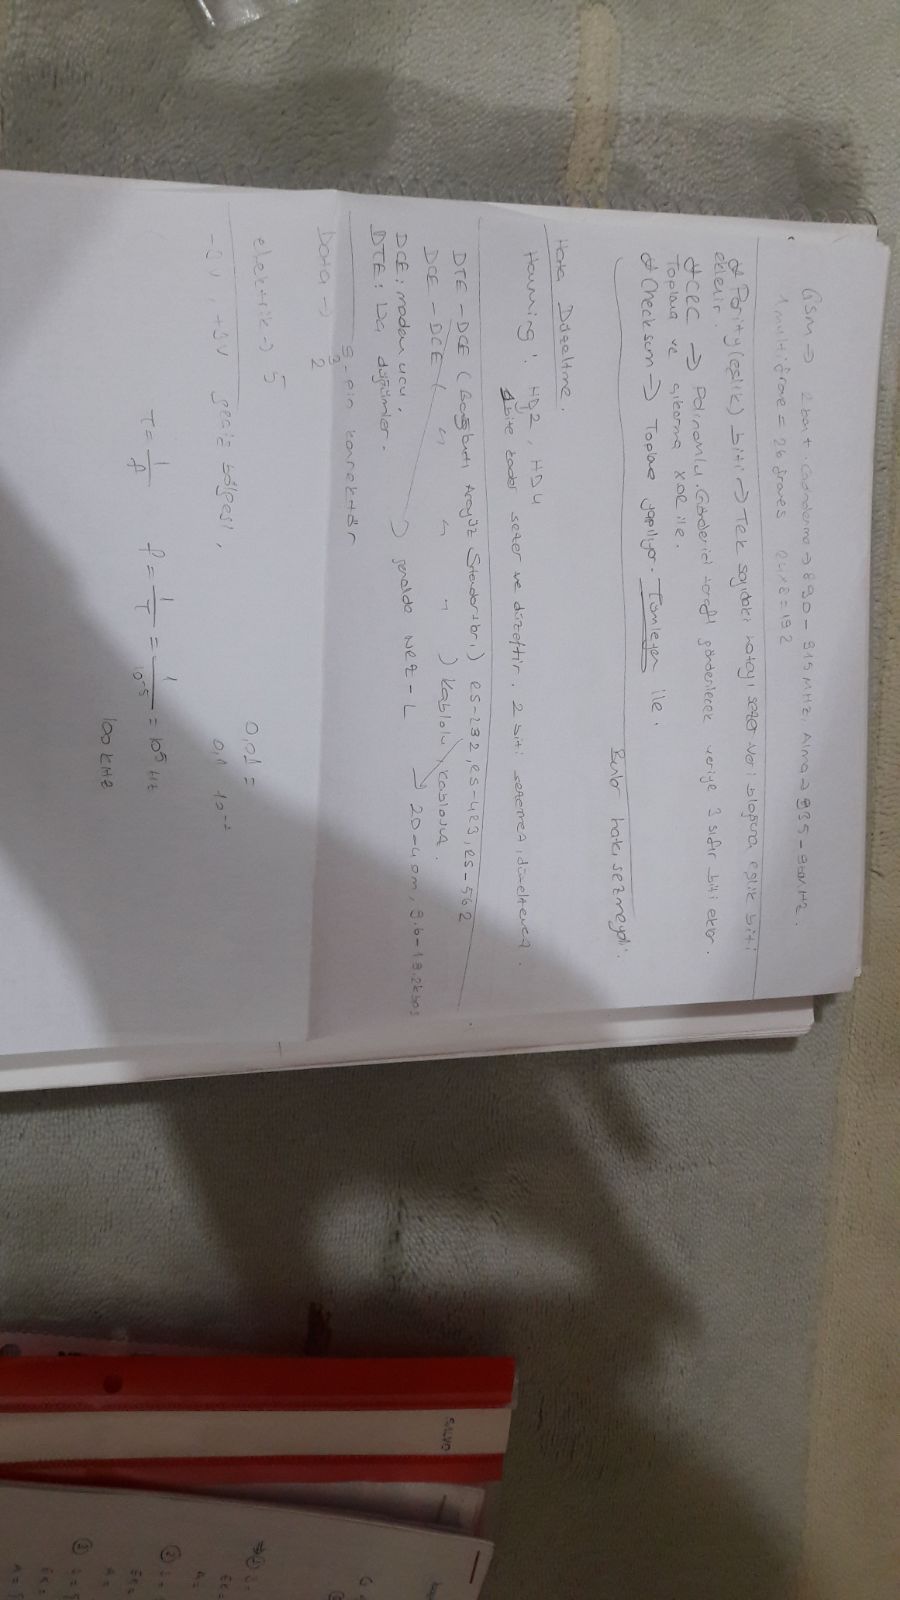 GSM → 2 bant. Gönderme → 890 - 915 MHz, Alma → 935 - 960 MHz.
1 multiframe = 26 frames 24x8 = 192
Parity (eşlik) biti → Tek sayıdaki hatayı sezer veri bloğuna eşlik biti
eklenir.
CRC → Polinomlu. Gönderici taraf gönderilecek veriye 3 sıfır biti ekler.
Toplama ve çıkarma XOR ile.
Checksum → Toplama yapılıyor. Tümleyen ile.
Bunlar hata sezmeydi.
Hata Düzeltme.
Hamming: HD2, HD4
bite kadar sezer ve düzeltir. 2 biti sezemez, düzeltemez.
DTE - DCE (Bağlantı Arayüz Standartları) RS-232, RS-423, RS-562
DCE - DCE ( " " " ) Kablolu, kablosuz.
DCE: modem ucu. ) genelde NRZ-L → 20-40m, 9.6-19.2kbps
DTE: Uç düğümler.
9-pin konektör
Data → 3
2
elektrik → 5
0,01 =
-3V, +3V geçiş bölgesi,
T = 1/f f = 1/T = 1/10⁻⁵ = 10⁵ Hz
100 kHz
SALVO